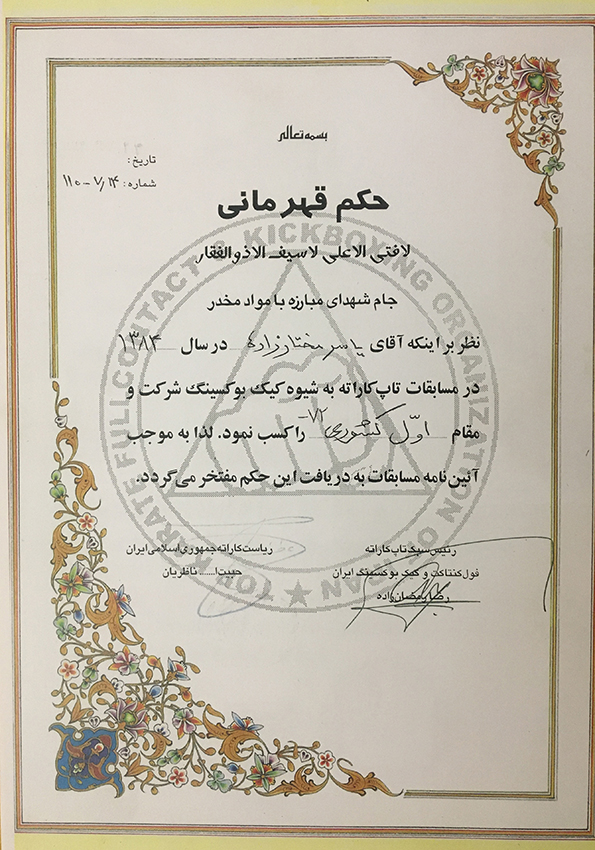 بسمه تعالی
تاریخ:
شماره: ۱۱۰-۷/۲۴
حکم قهرمانی
لافتی الاعلی لاسیف الاذوالفقار
جام شهدای مبارزه با مواد مخدر
نظر بر اینکه آقای یاسر مختارزاده در سال ۱۳۸۴
در مسابقات تاپ کاراته به شیوه کیک بوکسینگ شرکت و
مقام اوّل کشوری ۷۲- را کسب نمود. لذا به موجب
آئین نامه مسابقات به دریافت این حکم مفتخر می‌گردد.
رئیس سبک تاپ کاراته
فول کنتاکت و کیک بوکسینگ ایران
رضا رمضان زاده
ریاست کاراته جمهوری اسلامی ایران
حبیب ا... ناظریان
TOP KARATE FULLCONTACT & KICKBOXING ORGANIZATION OF IRAN